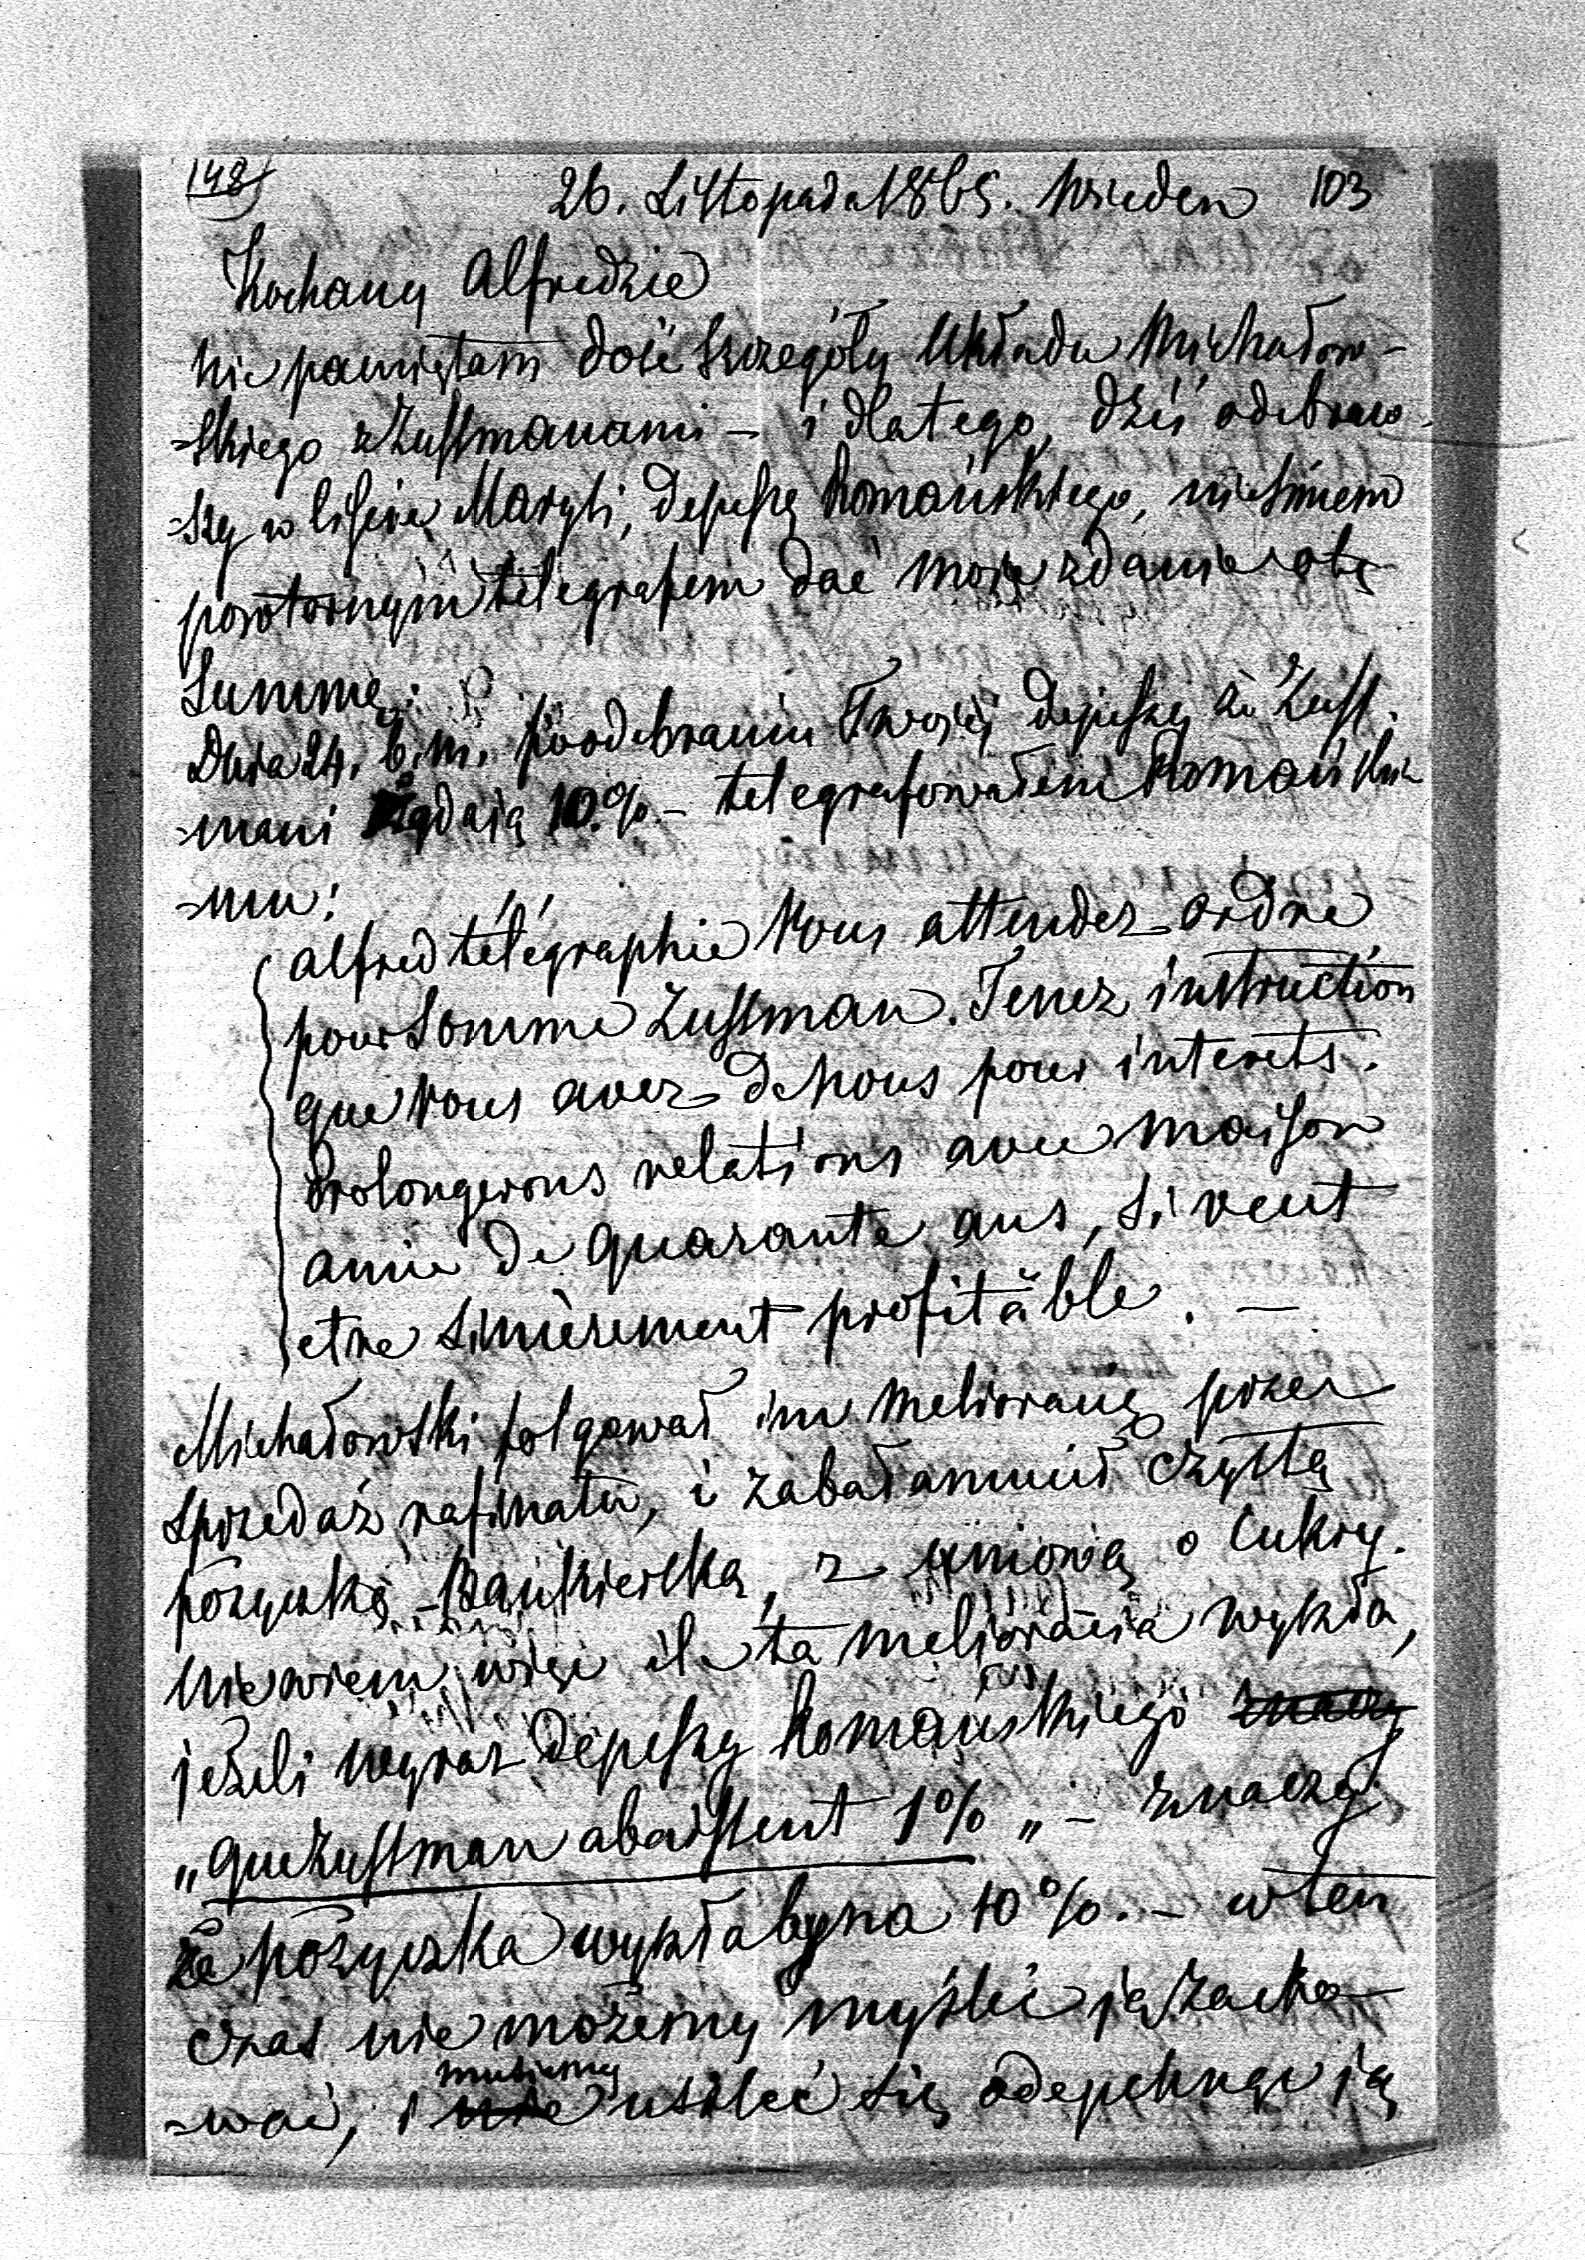 148
26. Listopada 1865. Wieden 103
Kochany Alfredzie
Nie pamiętam dość szczegóły układu Michałow-
-skiego z Zussmanami – i dlatego, dziś odebraw-
-szy w liście Maryli, depeszę Romańskiego, nieśmiem
powtornym telegrafem dać moje zdanie o tę
Summę:
Dnia 24. b.m. po odebraniu Twojej depeszy że Zuss-
-mani żądają 10.% – telegrafowałem Romańskie-
-mu:
Alfred télégraphie Vous attendez ordre
pour Somme Zussman. Tenez instruction
que Vous avez de Nous pour interets.
Prolongerons relations avec maison
amie de quarante ans, si veut
etre sincèrement profitable. —
Michałowski folgował im melioracię przez
sprzedaż rafinatu, i zabałamucił czystą
pożyczkę Bankierską, z umową o Cukry.
Nie wiem więc ile ta melioracia wyniosła,
jeżeli wyraz depeszy Romańskiego
„que Zussman abaissent 1% „ – znaczy
że pożyczka wyniosłaby na 10%. – w ten
czas nie możemy myśleć ją zacho-
-wać, i musiemy usiłać się odepchnąć ją